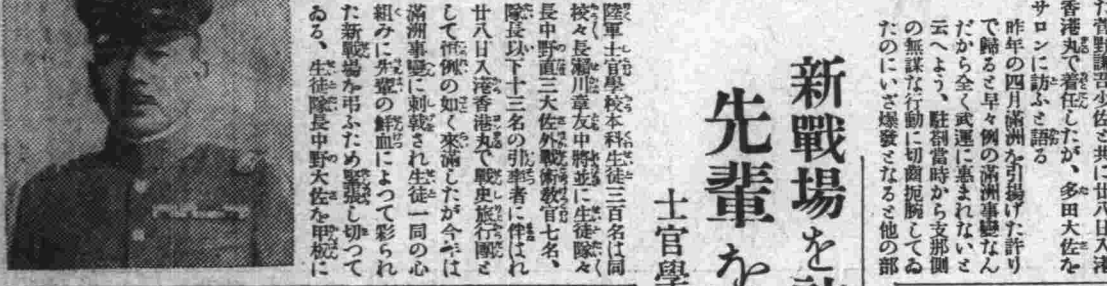 た菅野謙吾少佐と共に廿八日入港
香港丸で着任したが、多田大佐を
サロンに訪ふと語る
昨年の四月滿洲を引揚げた許り
で歸ると早々例の滿洲事變なん
だから全く武運に惠まれないと
云へよう、駐剳當時から支那側
の無謀な行動に切齒扼腕してゐ
たのにいざ爆發となると他の部
新戰場を
先輩を
士官學
陸軍士官學校本科生徒三百名は同
校々長瀬川章友中將並に生徒隊々
長中野直三大佐外戰術敎官七名、
隊長以下十三名の引率者に伴はれ
廿八日入港香港丸で戰史旅行團と
して恒例の如く來滿したが今年は
滿洲事變に刺戟され生徒一同の心
組みに先輩の鮮血によつて彩られ
た新戰場を弔ふため緊張し切つて
ゐる、生徒隊長中野大佐を甲板に